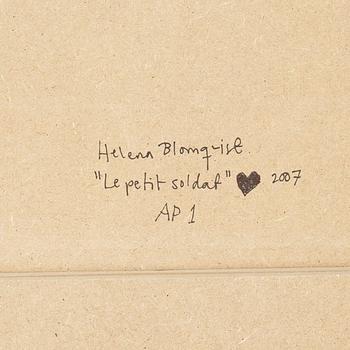 Helena Blomqvist.
"Le petit soldat" ♥ 2007
AP 1